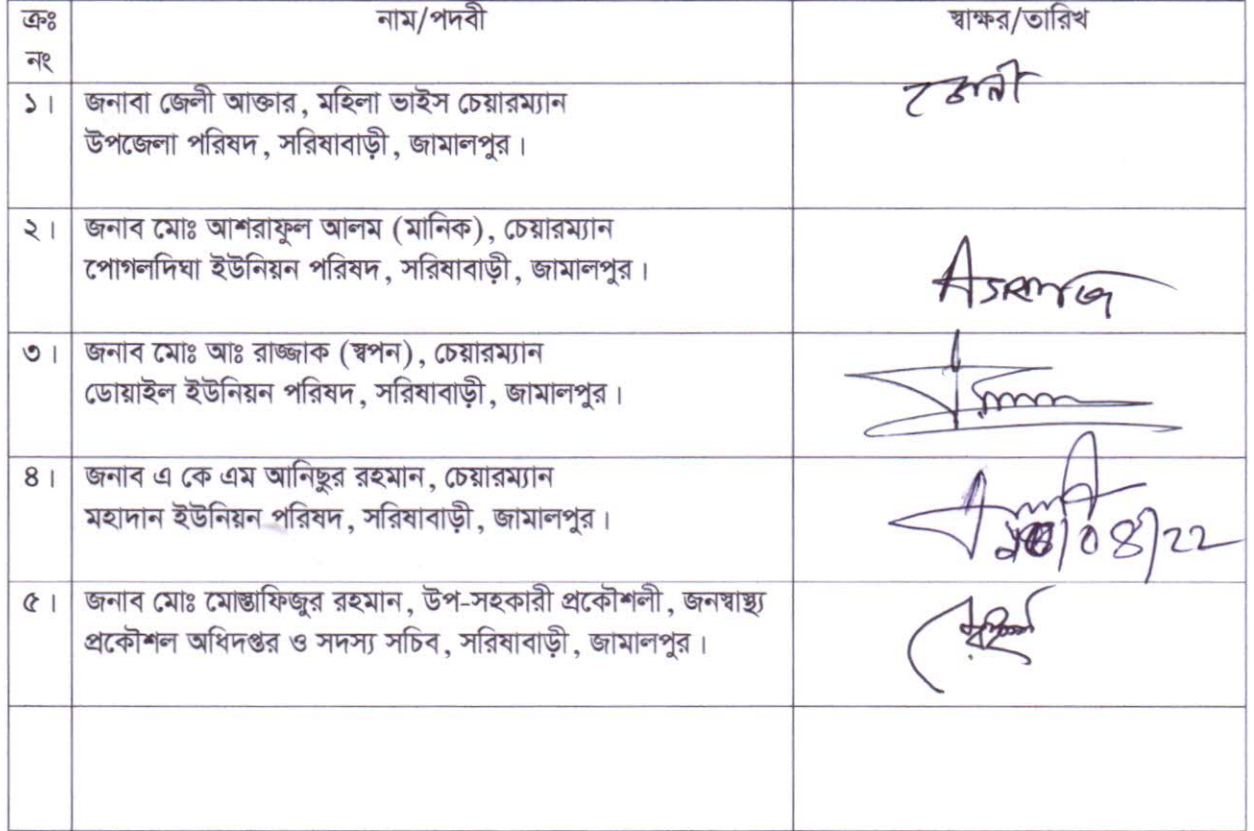 ক্রঃ নাম/পদবী স্বাক্ষর/তারিখ
নং
১। জনাবা জেলী আক্তার, মহিলা ভাইস চেয়ারম্যান জেলী
উপজেলা পরিষদ, সরিষাবাড়ী, জামালপুর।
২। জনাব মোঃ আশরাফুল আলম (মানিক), চেয়ারম্যান
পোগলদিঘা ইউনিয়ন পরিষদ, সরিষাবাড়ী, জামালপুর।
৩। জনাব মোঃ আঃ রাজ্জাক (স্বপন), চেয়ারম্যান
ডোয়াইল ইউনিয়ন পরিষদ, সরিষাবাড়ী, জামালপুর।
৪। জনাব এ কে এম আনিছুর রহমান, চেয়ারম্যান
মহাদান ইউনিয়ন পরিষদ, সরিষাবাড়ী, জামালপুর।
৫। জনাব মোঃ মোস্তাফিজুর রহমান, উপ-সহকারী প্রকৌশলী, জনস্বাস্থ্য
প্রকৌশল অধিদপ্তর ও সদস্য সচিব, সরিষাবাড়ী, জামালপুর।